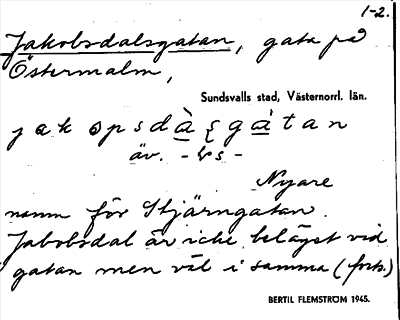 1-2.
Jakobsdalsgatan, gata på
Östermalm,
Sundsvalls stad, Västernorrl. län.
äv.
Nyare
namn för Stjärngatan.
Jakobsdal är icke beläget vid
gatan men väl i samma (forts.)
BERTIL FLEMSTRÖM 1945.